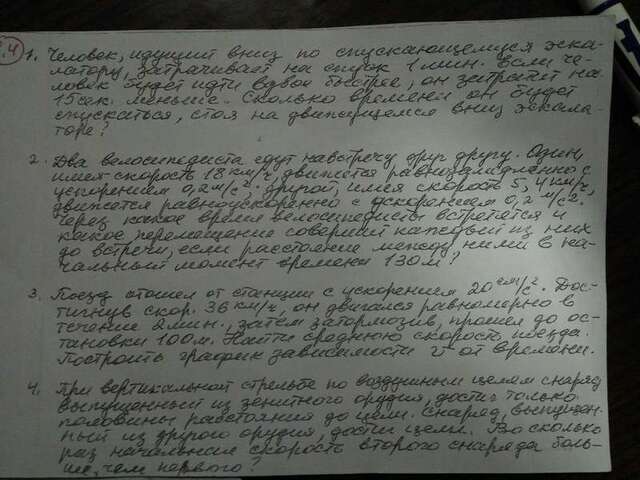 .4
1. Человек, идущий вниз по спускающемуся эска-
латору, затрачивает на спуск 1 мин. Если че-
ловек будет идти вдвое быстрее, он затратит на
15 сек. меньше. Сколько времени он будет
спускаться, стоя на движущемся вниз эскала-
торе?
2. Два велосипедиста едут навстречу друг другу. Один,
имея скорость 18 км/ч, движется равнозамедленно с
ускорением 0,2 м/с², другой, имея скорость 5,4 км/ч,
движется равноускоренно с ускорением 0,2 м/с².
Через какое время велосипедисты встретятся и
какое перемещение совершит каждый из них
до встречи, если расстояние между ними в на-
чальный момент времени 130 м?
3. Поезд отошел от станции с ускорением 20 см/с². Дос-
тигнув скор. 36 км/ч, он двигался равномерно в
течение 2 мин., затем затормозив, прошел до ос-
тановки 100 м. Найти среднюю скорость поезда.
Построить график зависимости v от времени.
4. При вертикальной стрельбе по воздушным целям снаряд,
выпущенный из зенитного орудия, достиг только
половины расстояния до цели. Снаряд, выпущен-
ный из другого орудия, достиг цели. Во сколько
раз начальная скорость второго снаряда боль-
ше, чем первого?